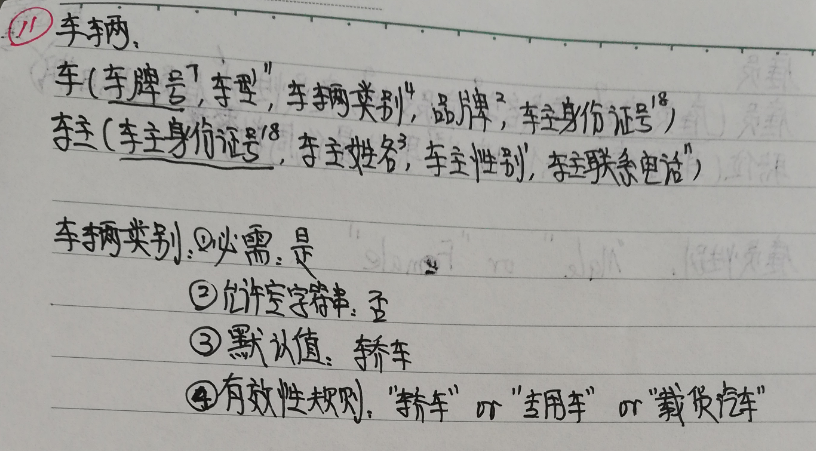 ⑪ 车辆:
车(车牌号7, 车型11, 车辆类别4, 品牌2, 车主身份证号18)
车主(车主身份证号18, 车主姓名3, 车主性别1, 车主联系电话11)
车辆类别:①必需:是
②允许空字符串:否
③默认值:轿车
④有效性规则:"轿车" or "专用车" or "载货汽车"
"Male" or "Female"